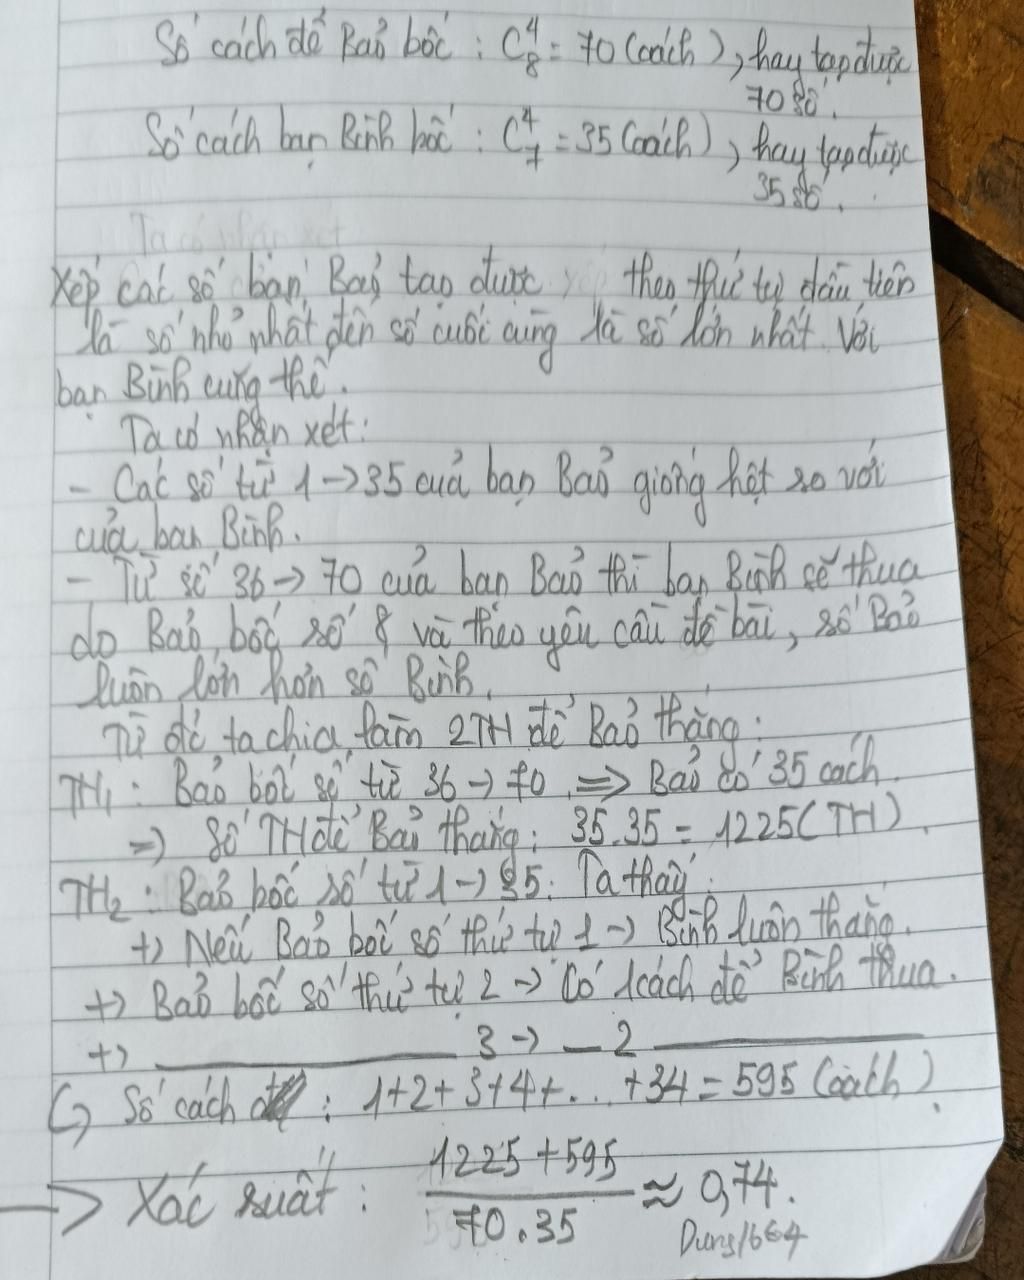 Số cách để Bảo bốc : C⁴₈ = 70 (cách), hay tạo được
70 số.
Số cách bạn Bình bốc : C⁴₇ = 35 (cách), hay tạo được
35 số.
Ta có nhận xét
Xếp các số bạn Bảo tạo được theo thứ tự đầu tiên
là số nhỏ nhất đến số cuối cùng là số lớn nhất. Với
bạn Bình cũng thế.
Ta có nhận xét:
- Các số từ 1 -> 35 của bạn Bảo giống hệt so với
của bạn Bình.
- Từ số 36 -> 70 của bạn Bảo thì bạn Bình sẽ thua
do Bảo bốc số 8 và theo yêu cầu đề bài, số Bảo
luôn lớn hơn số Bình.
Từ đó ta chia làm 2TH để Bảo thắng:
TH₁ : Bảo bốc số từ 36 -> 70 => Bảo có 35 cách.
=> Số TH để Bảo thắng: 35.35 = 1225 (TH).
TH₂ : Bảo bốc số từ 1 -> 35. Ta thấy:
+> Nếu Bảo bốc số thứ tự 1 -> Bình luôn thắng.
+> Bảo bốc số thứ tự 2 -> Có 1 cách để Bình thua.
+> ________ 3 -> _ 2 ________
Số cách : 1+2+3+4+... +34 = 595 (cách)
-> Xác suất : (1225 + 595)/(70.35) ≈ 0,74.
Dung1664